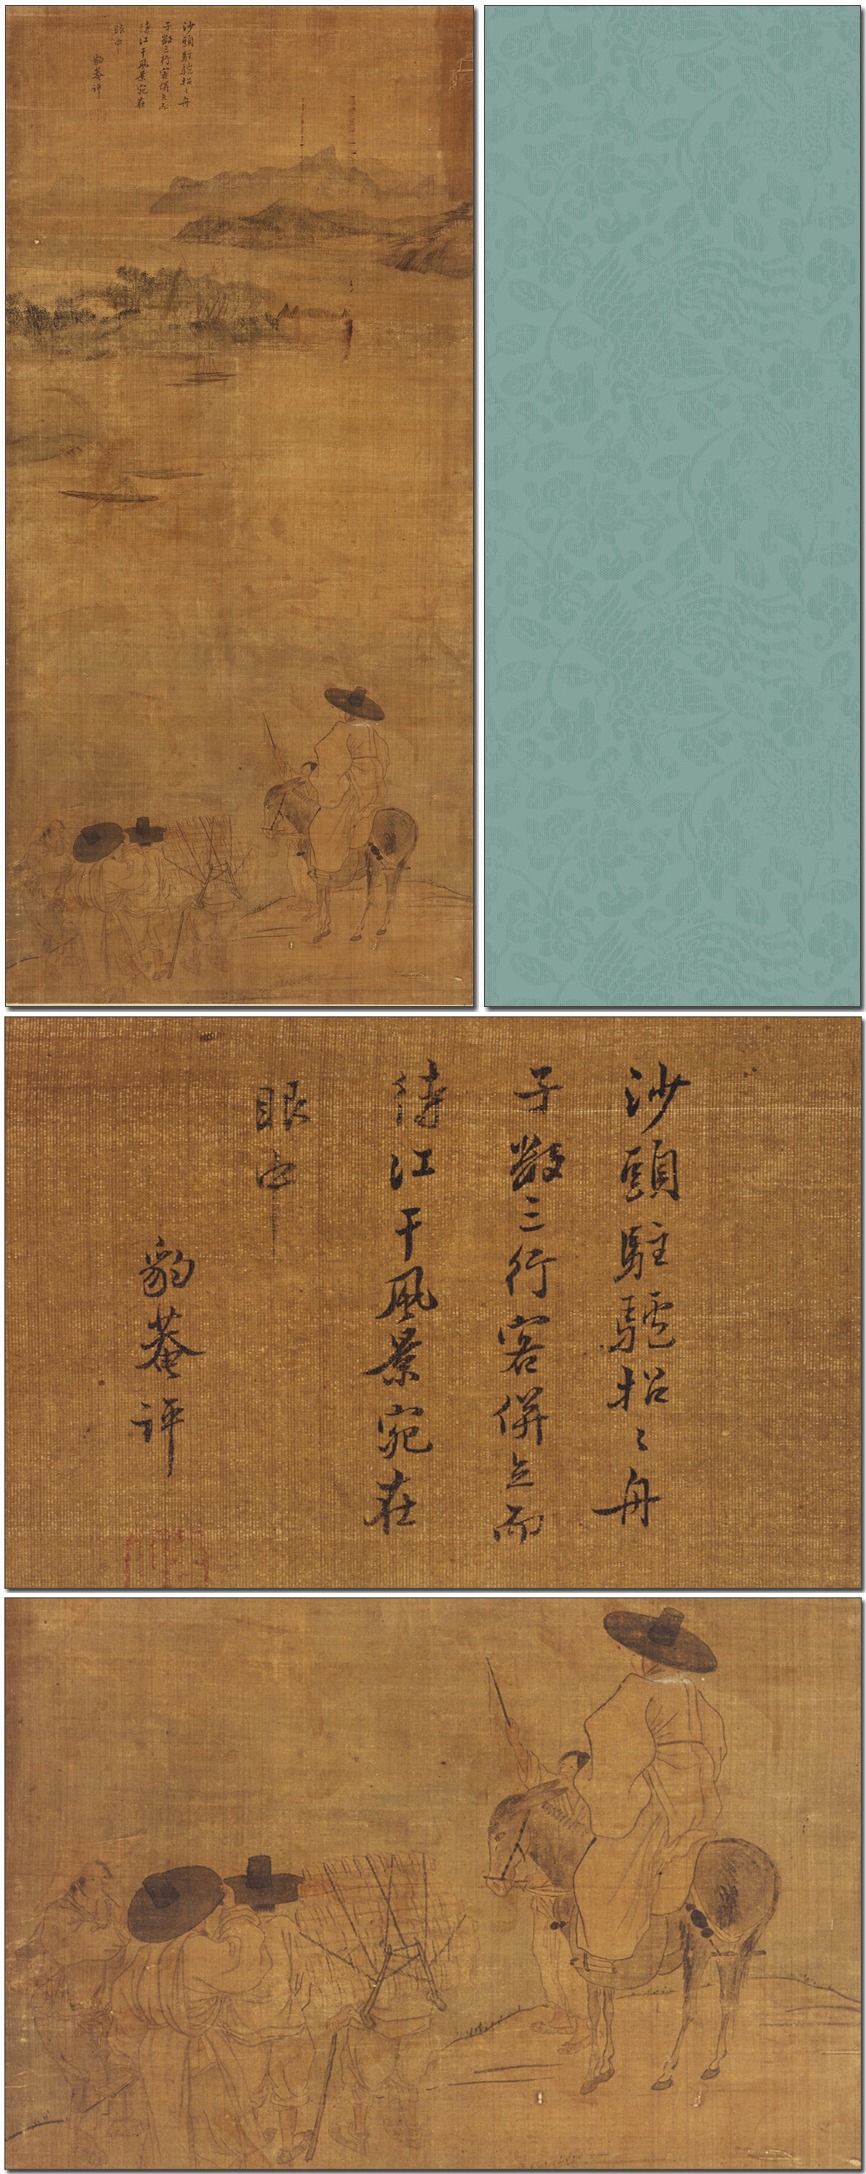 沙頭駐驢招〻舟
子數三行客併立而
待江干風景宛在
眼中
豹菴評
沙頭駐驢招〻舟
子數三行客併立而
待江干風景宛在
眼中
豹菴評